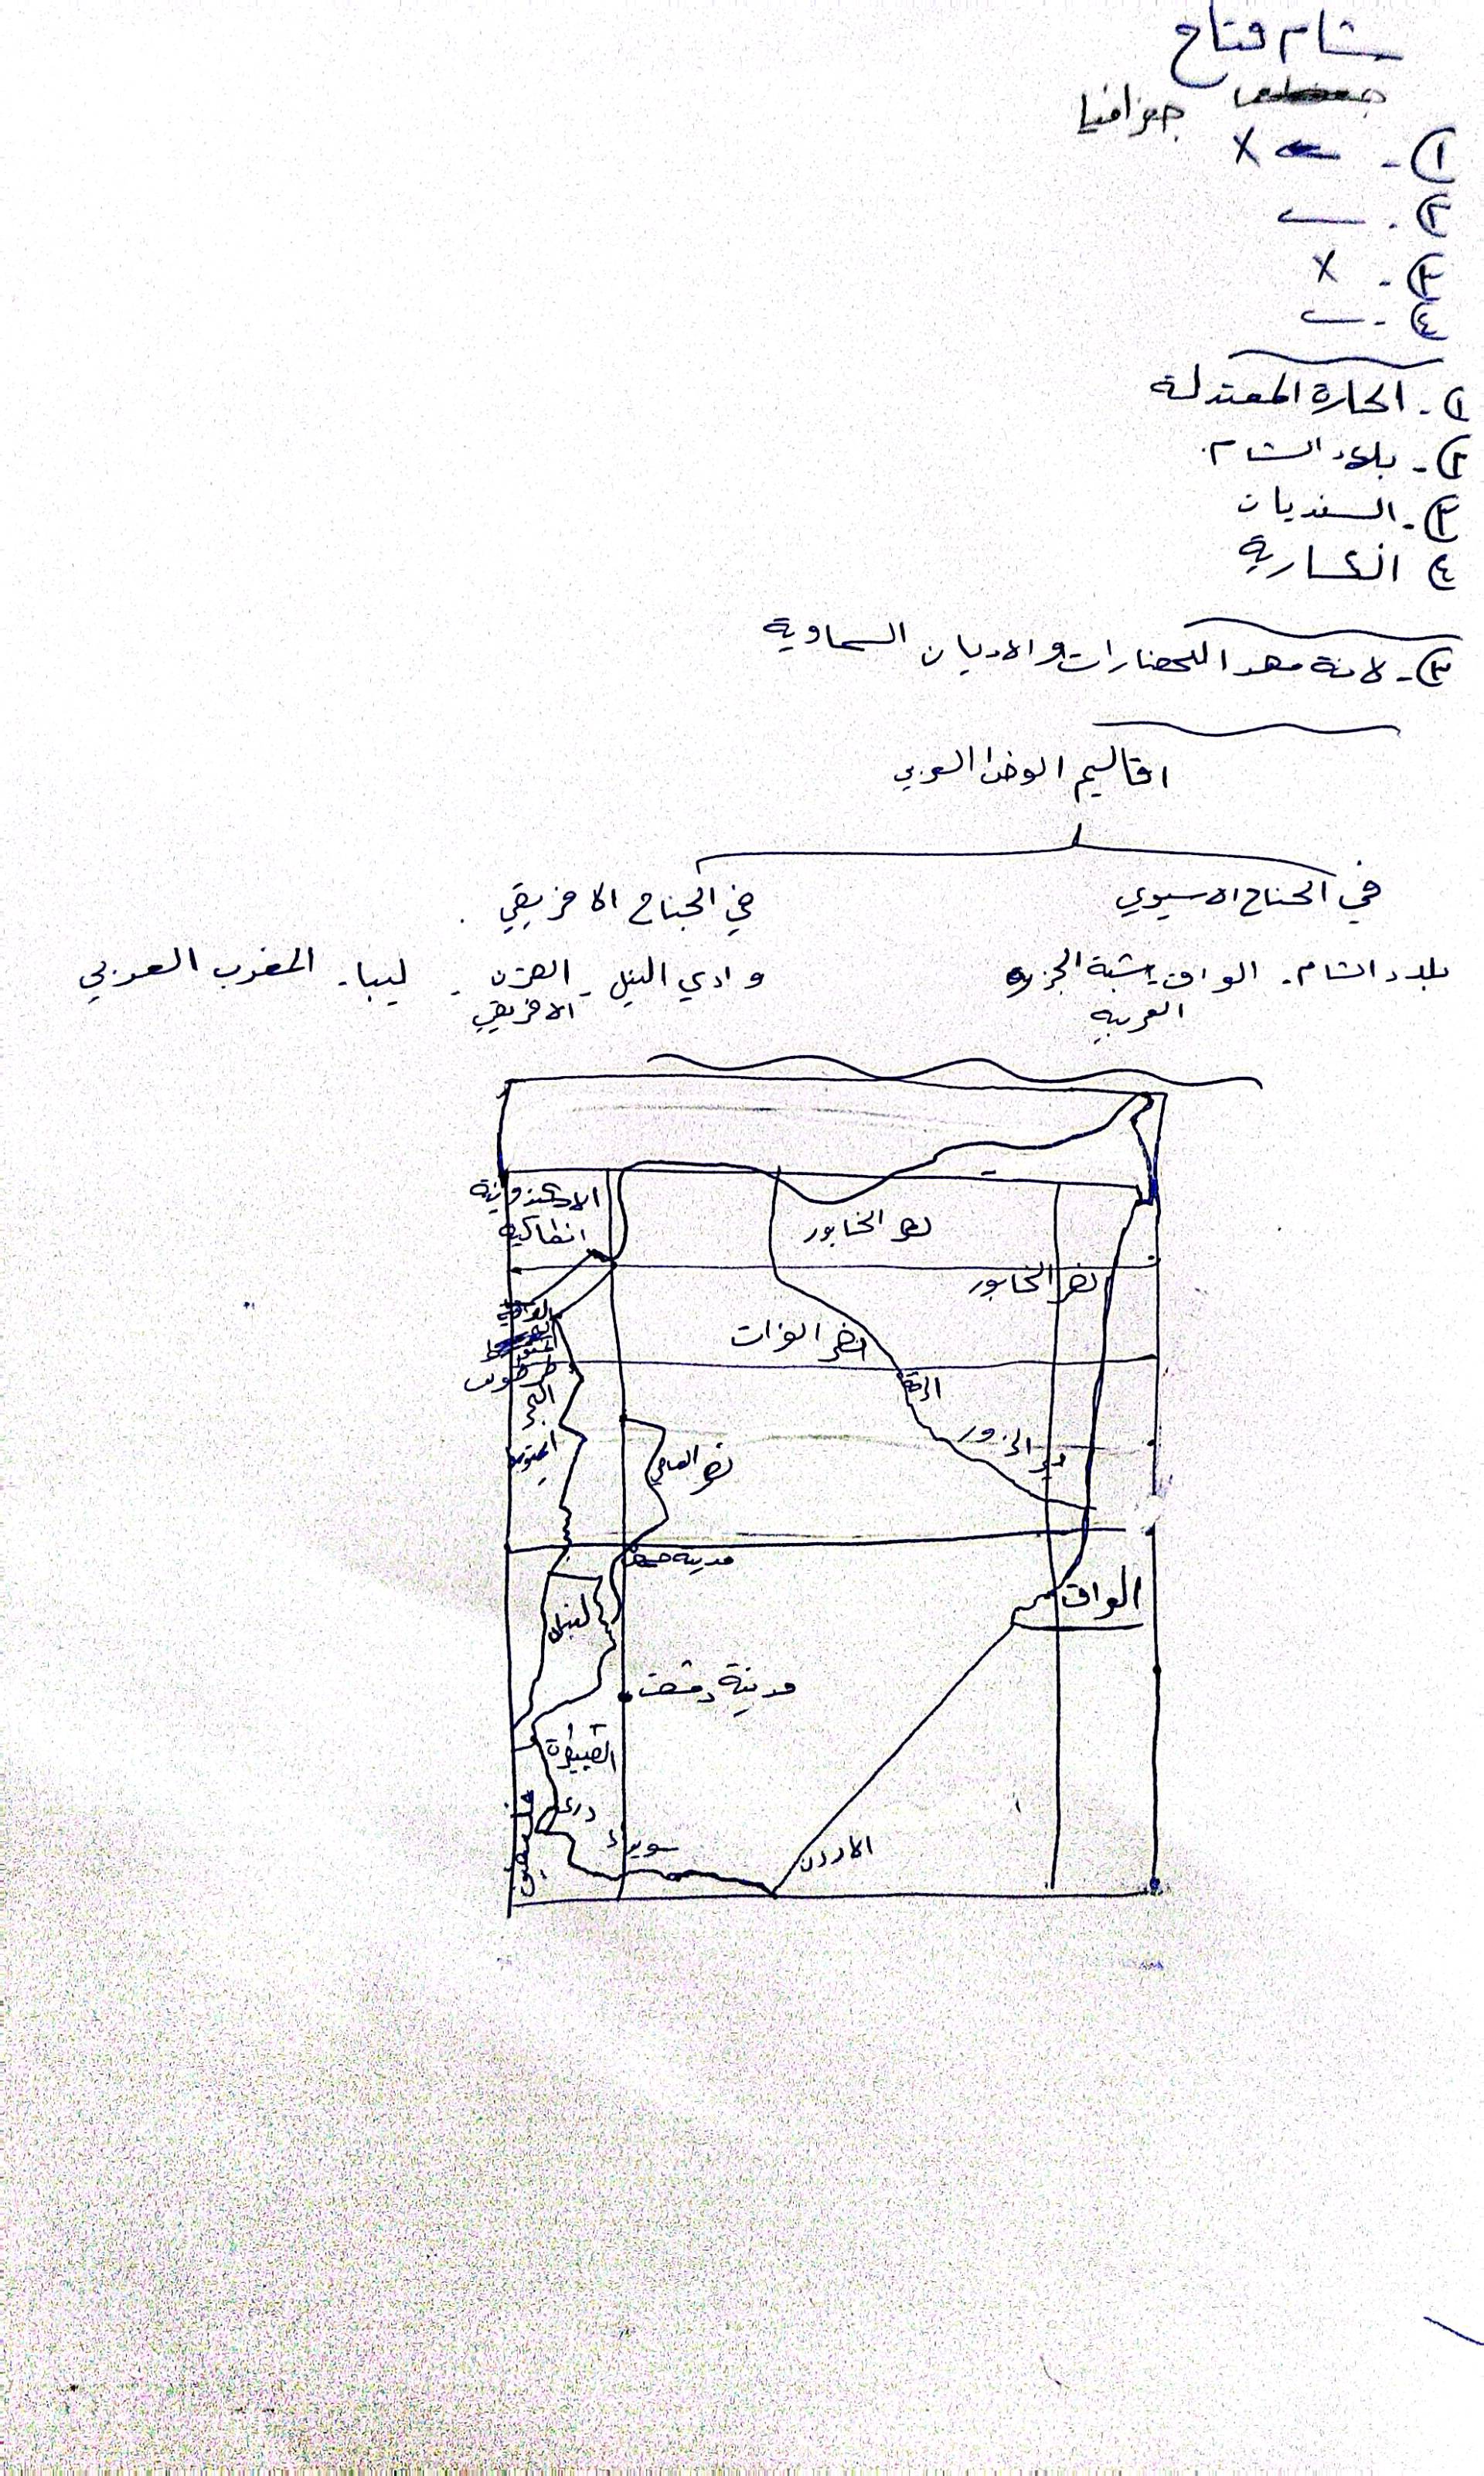 شام فتاح
جغرافيا
١ - X
٢ -
٣ - X
٤ -
١ - الحارة المعتدلة
٢ - بلاد الشام
٣ - السنديان
٤
٣ - لانة مهد الحضارات والاديان السماوية
اقاليم الوطن العربي
في الجناح الاسيوي
في الجناح الافريقي
بلاد الشام - العراق - شبة الجزيرة العربية
وادي النيل - القرن الافريقي - ليبيا - المغرب العربي
الاسكندرونة
انطاكية
نهر الخابور
نهر الخابور
اللاذقية
نهر الفرات
طرطوس
الرقة
البحر
المتوسط
دير الزور
نهر العاصي
مدينة حمص
العراق
لبنان
مدينة دمشق
القنيطرة
درعا
سويداء
الاردن
فلسطين